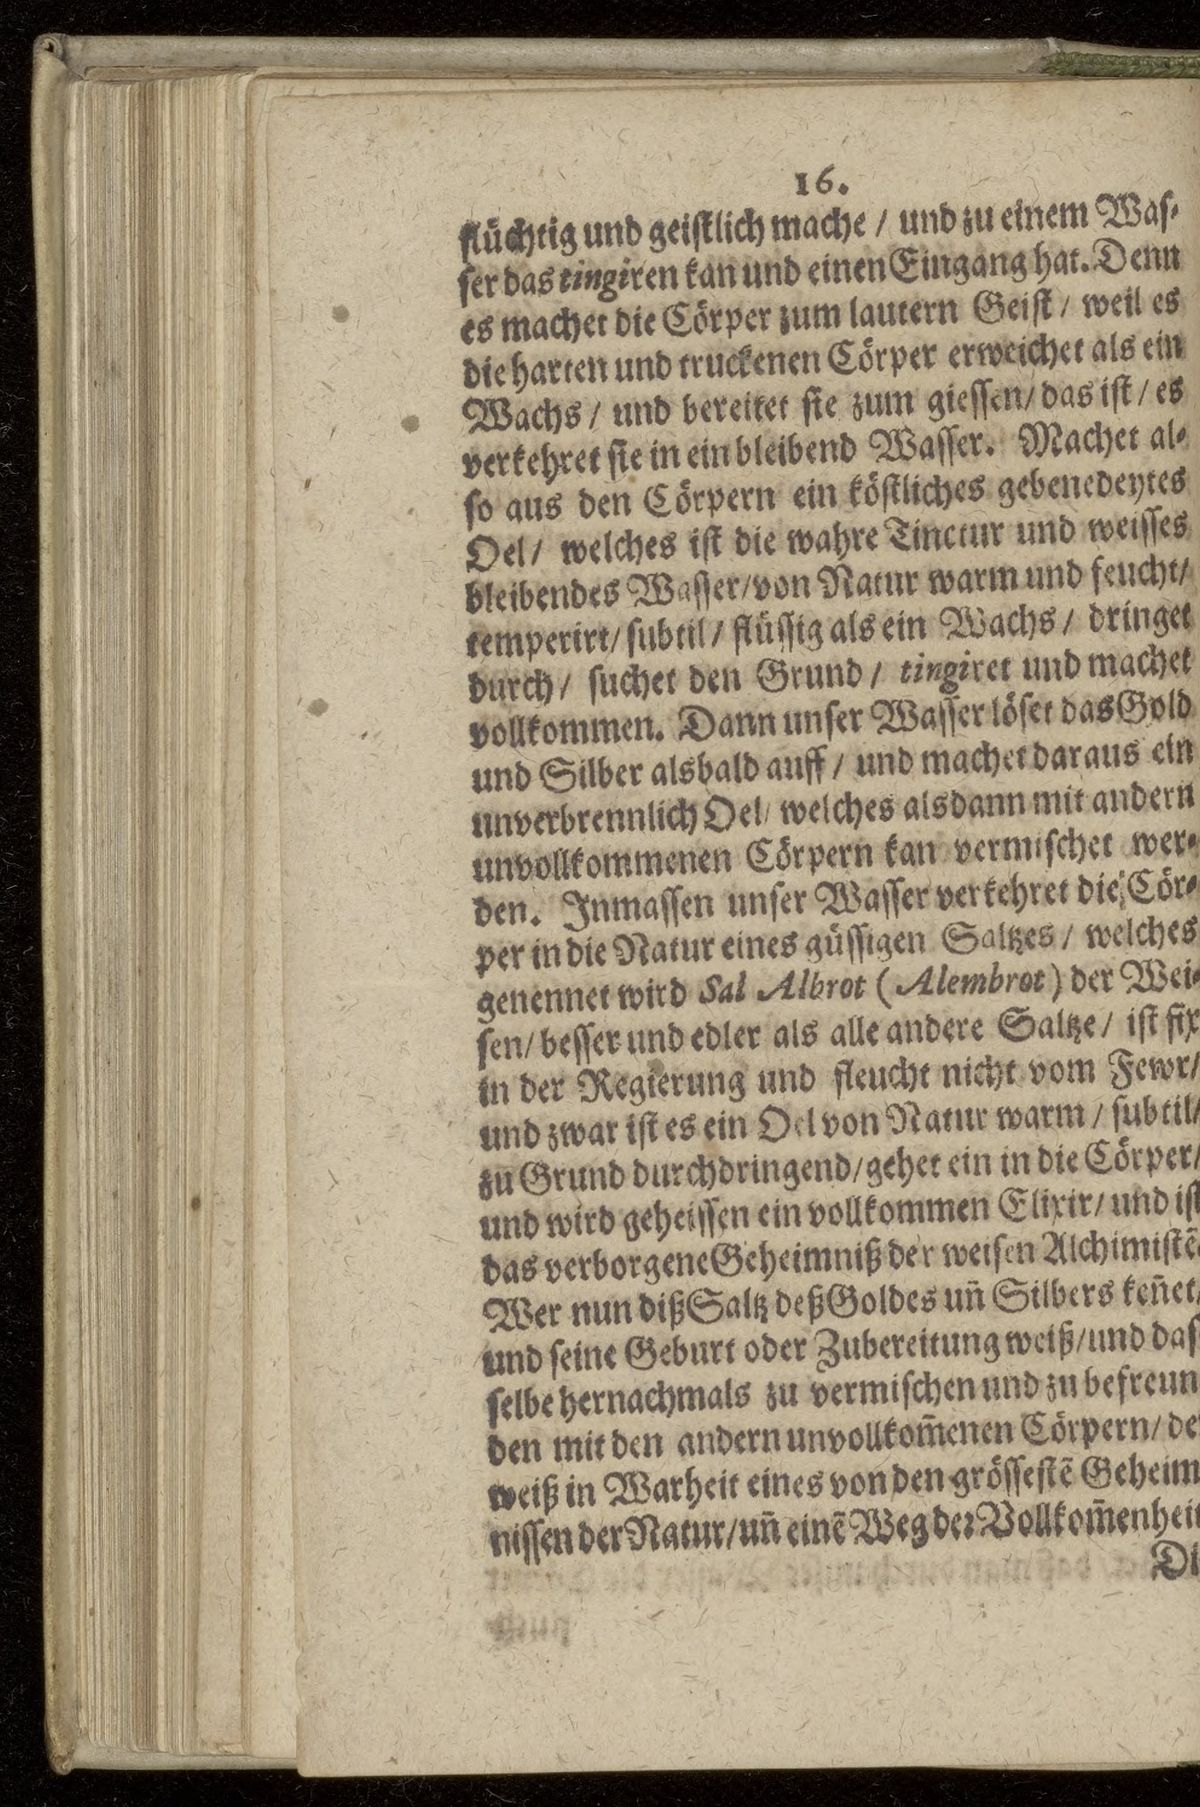 16.
flüchtig und geistlich mache / und zu einem Was-
ser das tingiren kan und einen Eingang hat. Denn
es machet die Cörper zum lautern Geist / weil es
die harten und truckenen Cörper erweichet als ein
Wachs / und bereitet sie zum giessen/ das ist / es
verkehret sie in ein bleibend Wasser. Machet al-
so aus den Cörpern ein köstliches gebenedeytes
Oel / welches ist die wahre Tinctur und weisses
bleibendes Wasser/von Natur warm und feucht/
temperirt/ subtil / flüssig als ein Wachs / dringet
durch / suchet den Grund / tingiret und machet
vollkommen. Dann unser Wasser löset das Gold
und Silber alsbald auff / und machet daraus ein
unverbrennlich Oel/ welches alsdann mit andern
unvollkommenen Cörpern kan vermischet wer-
den. Inmassen unser Wasser verkehret die Cör-
per in die Natur eines güssigen Saltzes / welches
genennet wird Sal Albrot (Alembrot) der Wei-
sen/ besser und edler als alle andere Saltze / ist fix
in der Regierung und fleucht nicht vom Fewr/
und zwar ist es ein Oel von Natur warm / subtil/
zu Grund durchdringend/gehet ein in die Cörper/
und wird geheissen ein vollkommen Elixir/ und ist
das verborgene Geheimniß der weisen Alchimistē
Wer nun diß Saltz deß Goldes un̄ Silbers ken̄et/
und seine Geburt oder Zubereitung weiß/und das
selbe hernachmals zu vermischen und zu befreun
den mit den andern unvollkom̄enen Cörpern/ de
weiß in Warheit eines von den grössestē Geheim
nissen der Natur/un̄ einē Weg der Vollkom̄enheit
Di